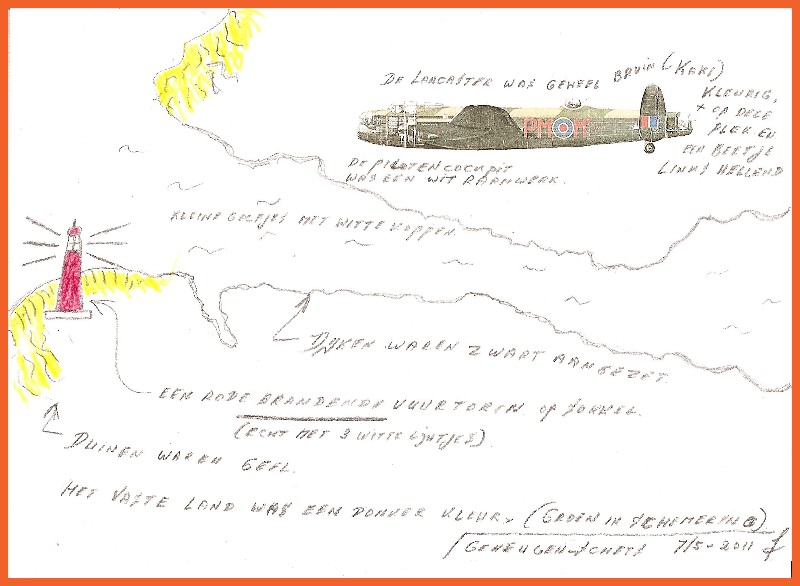 DE LANCASTER WAS GEHEEL BRUIN (KAKI)
KLEURIG,
+ OP DEZE
PLEK EN
EEN BEETJE
LINKS HELLEND
PM M
DE PILOTEN COCKPIT
WAS EEN WIT RAAMWERK.
KLEINE GOLFJES MET WITTE KOPPEN.
DYKEN WAREN ZWART AANGEZET.
EEN RODE BRANDENDE VUURTOREN OP SOKKEL.
(ECHT MET 3 WITTE LIJNTJES)
DUINEN WAREN GEEL.
HET VASTE LAND WAS EEN DONKER KLEUR. (GROEN IN SCHEMERING)
GEHEUGEN-SCHETS 7/5-2011